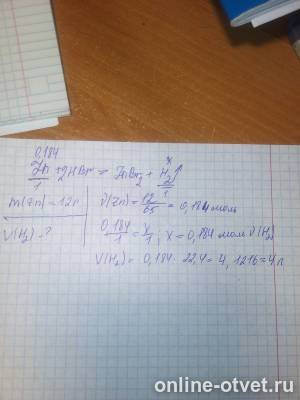 0,184 x
Zn + 2HBr = ZnBr2 + H2↑
1 1
m(Zn) = 12г
V(H2) - ?
ν(Zn) = 12/65 = 0,184 моль
0,184/1 = x/1; x = 0,184 моль ν(H2)
V(H2) = 0,184 · 22,4 = 4,1216 = 4 л
online-otvet.ru